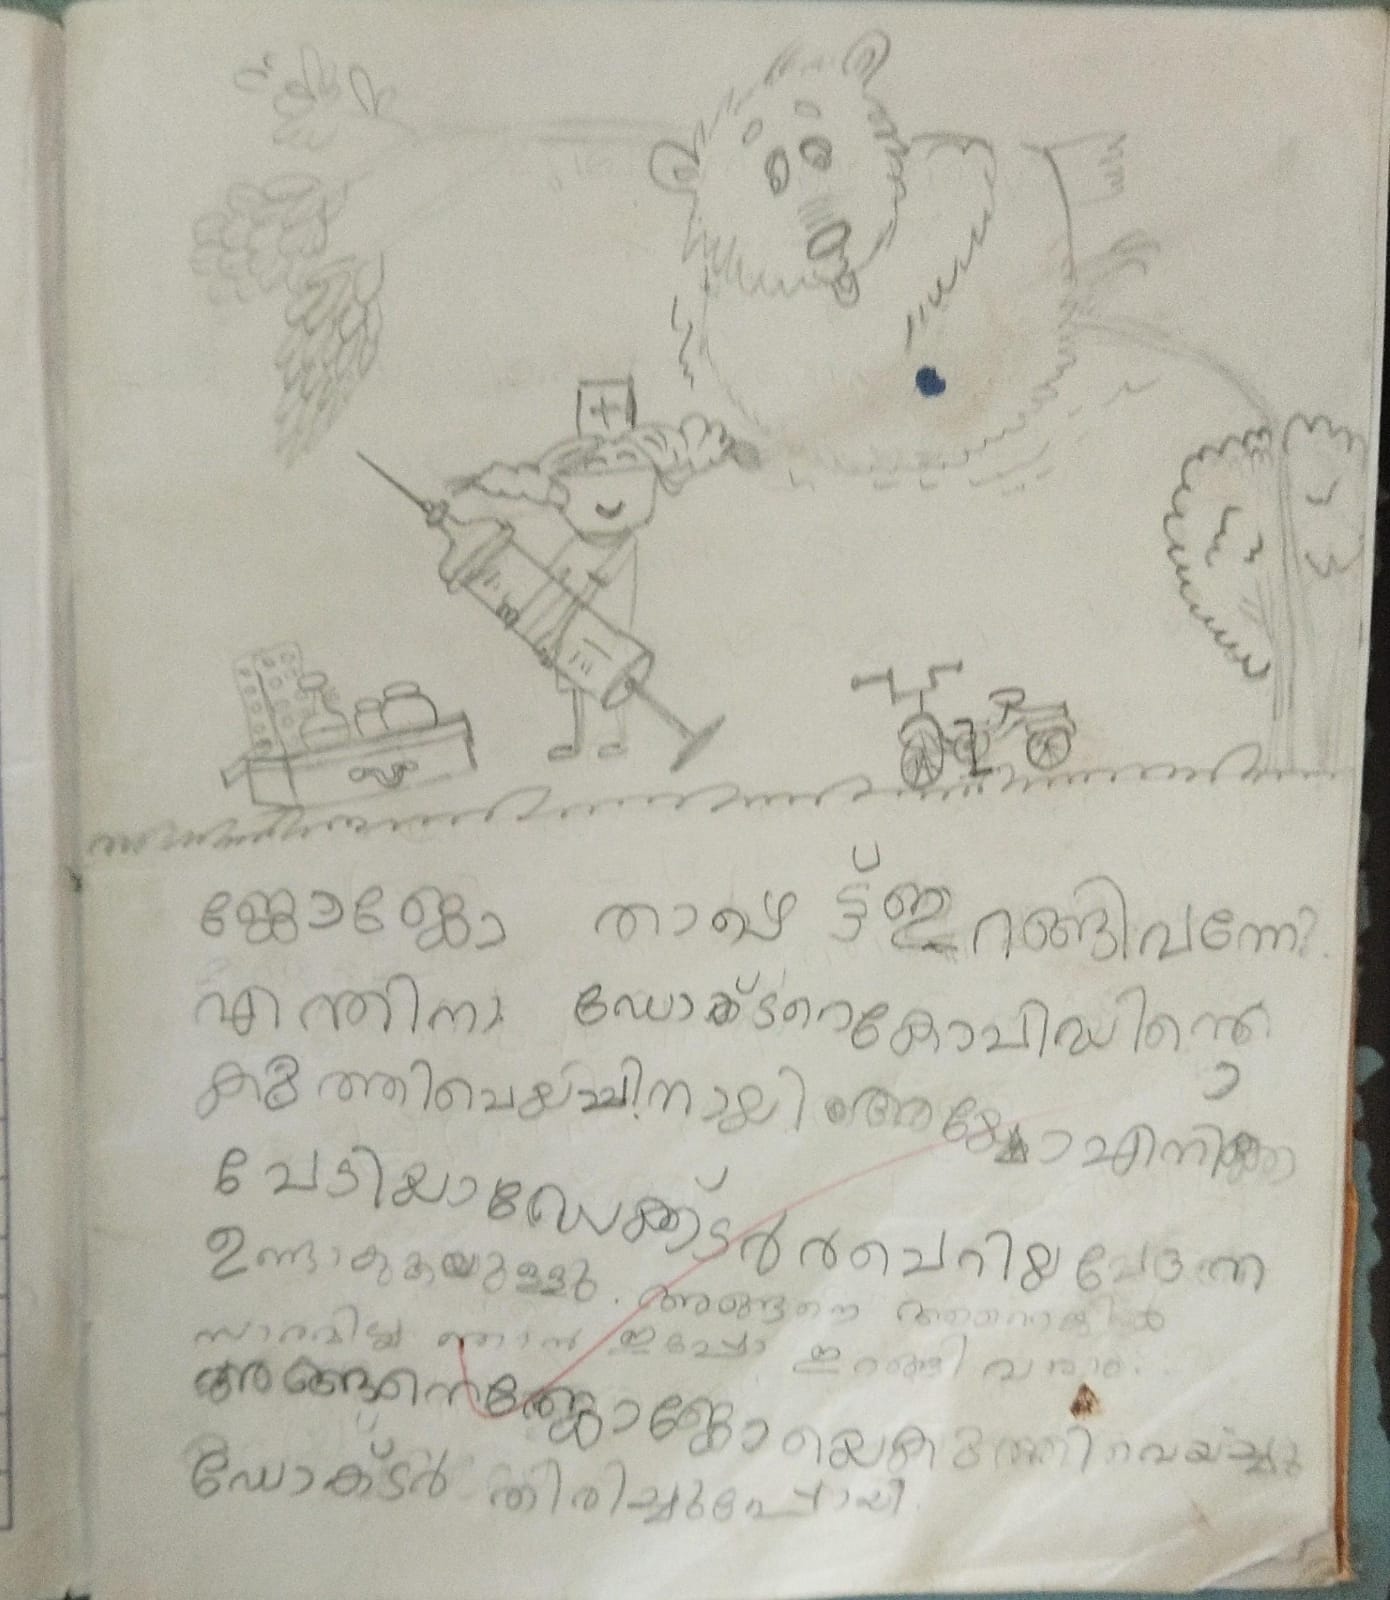 ജോജോ താഴേട്ട് ഇറങ്ങിവന്നേ?
എന്തിനാ ഡോക്ടറെ കോവിഡിന്റെ
കുത്തിവെയ്പ്പിനായി അയ്യോ എനിക്കു
പേടിയാ ഡോക്ക്ടർ ചെറിയ വേദന
ഉണ്ടാകുകയുള്ളു. അങ്ങനെ ആണെങ്കിൽ
സാരമില്ല ഞാൻ ഇപ്പോ ഇറങ്ങി വരാം.
അങ്ങനെ ജോജോയെ കുത്തിവെയ്ച്ചു
ഡോക്ടർ തിരിച്ചുപോയി.